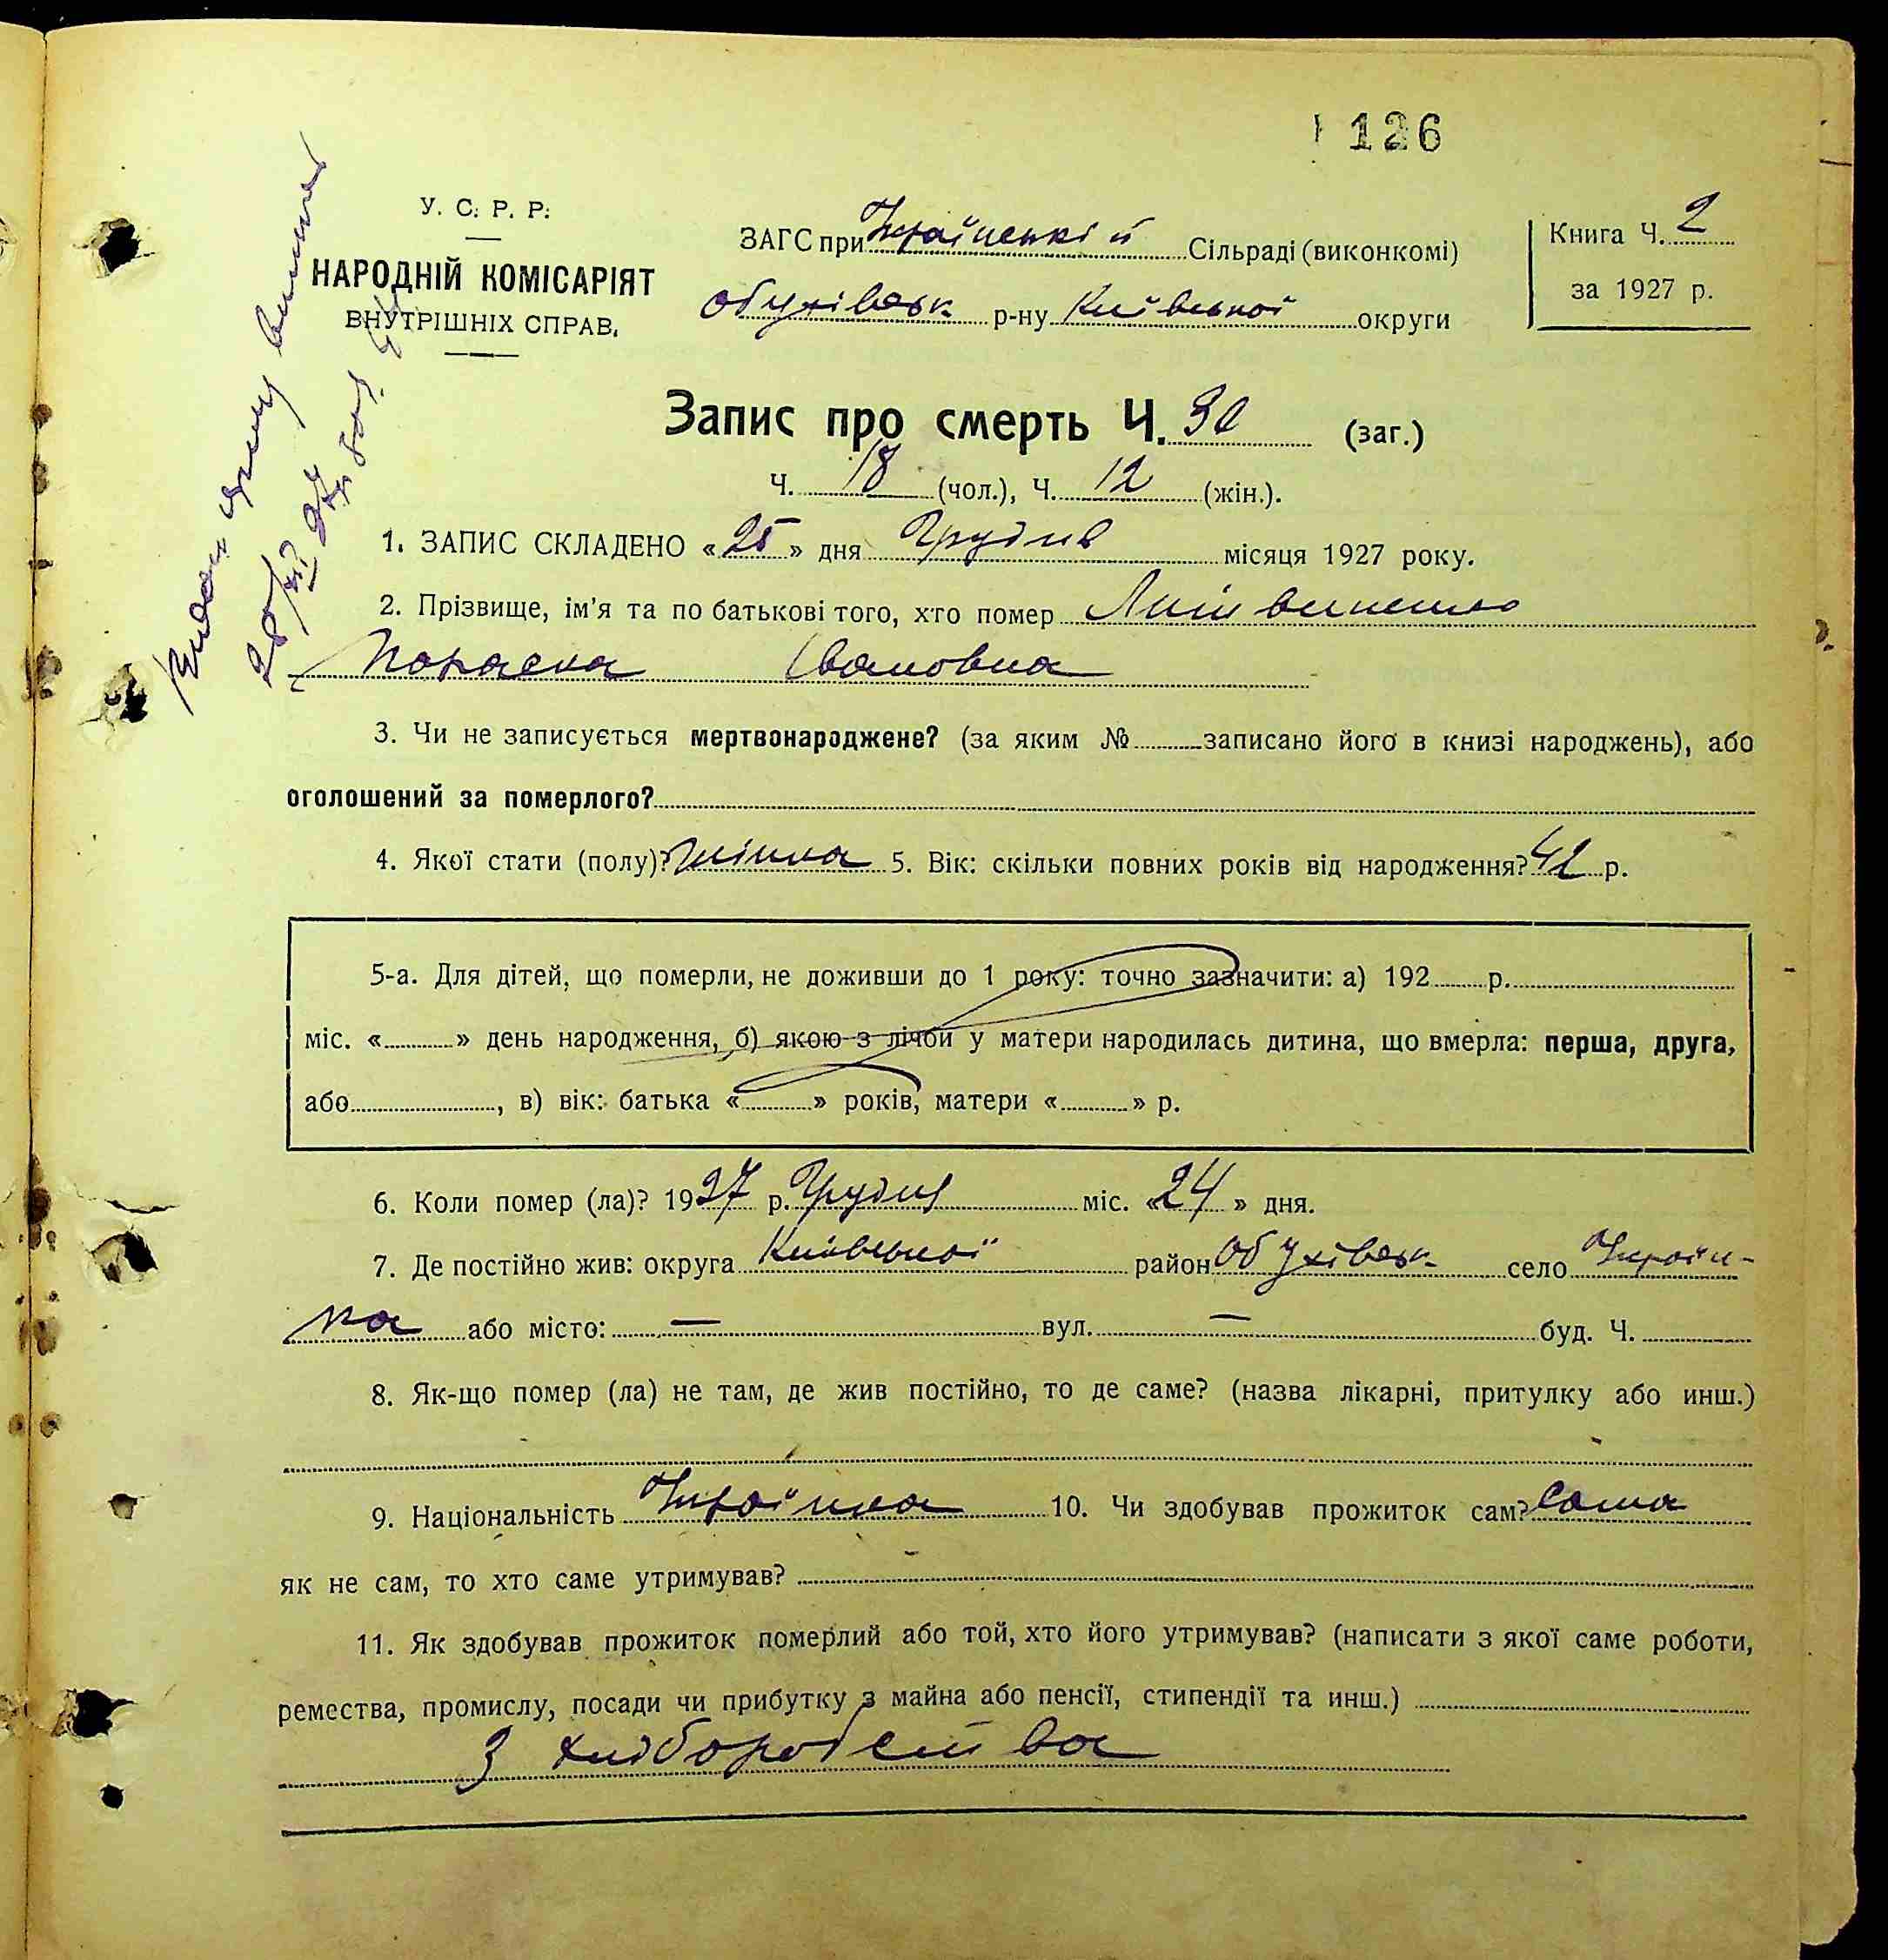 126
У. С. Р. Р.
НАРОДНІЙ КОМІСАРІЯТ
ВНУТРІШНІХ СПРАВ.
ЗАГС при Українській Сільраді (виконкомі)
Обухівськ р-ну Київської округи
Книга Ч. 2
за 1927 р.
Запис про смерть Ч. 30 (заг.)
Ч. 18 (чол.), Ч. 12 (жін.).
1. ЗАПИС СКЛАДЕНО «25» дня Грудня місяця 1927 року.
2. Прізвище, ім'я та по батькові того, хто помер Литвиненко
Параска Івановна
3. Чи не записується мертвонароджене? (за яким № записано його в книзі народжень), або
оголошений за померлого?
4. Якої стати (полу)? жінка 5. Вік: скільки повних років від народження? 42 р.
5-а. Для дітей, що померли, не доживши до 1 року: точно зазначити: а) 192 р.
міс. « » день народження, б) якою з лічби у матери народилась дитина, що вмерла: перша, друга,
або , в) вік: батька « » років, матери « » р.
6. Коли помер (ла)? 1927 р. Грудня міс. «24» дня.
7. Де постійно жив: округа Київської район Обухівськ село Україн-
ка або місто: — вул. — буд. Ч.
8. Як-що помер (ла) не там, де жив постійно, то де саме? (назва лікарні, притулку або инш.)
9. Національність Українка 10. Чи здобував прожиток сам? Сама
як не сам, то хто саме утримував?
11. Як здобував прожиток померлий або той, хто його утримував? (написати з якої саме роботи,
ремества, промислу, посади чи прибутку з майна або пенсії, стипендії та инш.)
З хліборобства